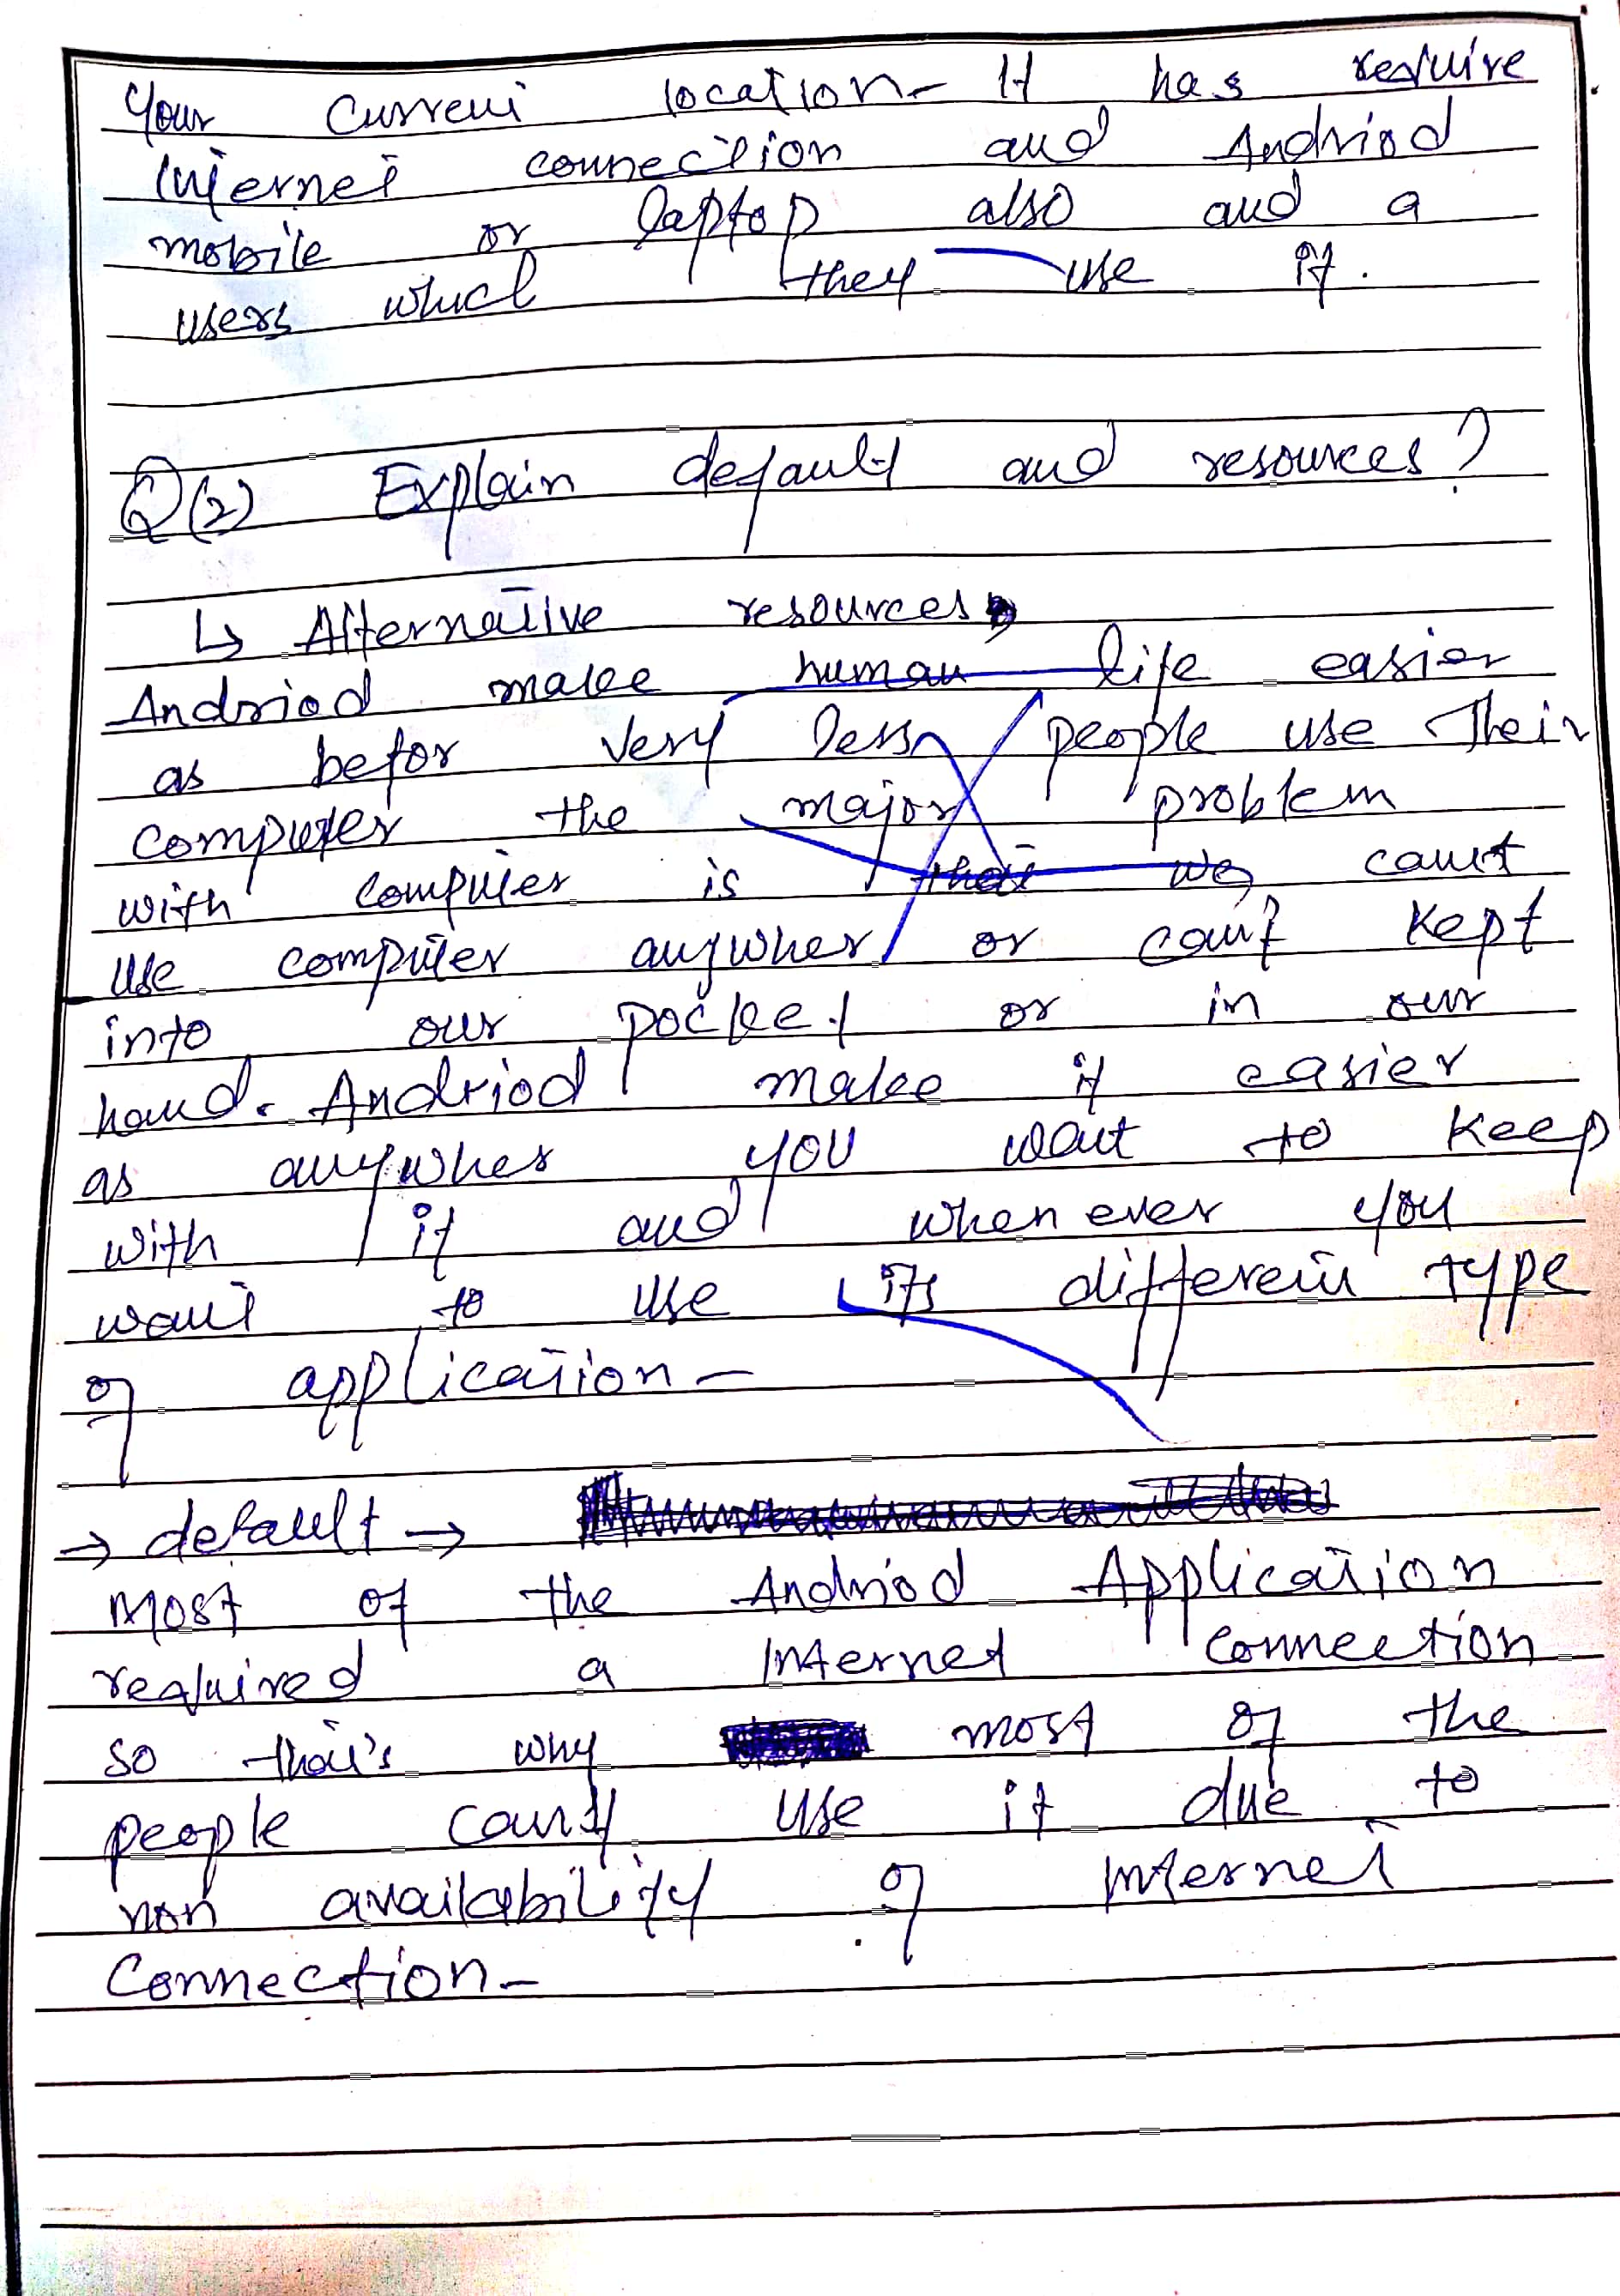 Your current location- It has require
internet connection and Andriod
mobile or laptop also and a
users which they use it.
Q(2) Explain default and resources?
↳ Alternative resources,
Andriod make human life easier
as befor very less people use Their
computer the major problem
with computer is that we can't
use computer anywher or can't kept
into our pocket or in our
hand. Andriod make it easier
as anywher you want to keep
with it and when ever you
want to use its different type
of application-
→ default →
Most of the Andriod Application
required a Internet connection
so that's why most of the
people can't use it due to
non availability of internet
Connection-